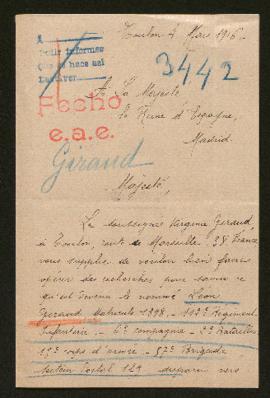 Toulon 4 Mars 1916 -
3442
A
Pedir informes
Fecho
e.a.e.
A Sa Majesté
la Reine d'Espagne,
Madrid.
Giraud
Majesté,
La soussignée Virginie Giraud,
à Toulon, route de Marseille. 38 France
vous supplie de vouloir bien faire
opérer des recherches pour savoir ce
qu'est devenu le nommé Léon
Giraud, Matricule 1998 - 112e Régiment
Infanterie - 6e compagnie - 2e Bataillon
15e corps d'armée - 57e Brigade
Secteur Postal 129 disparu vers